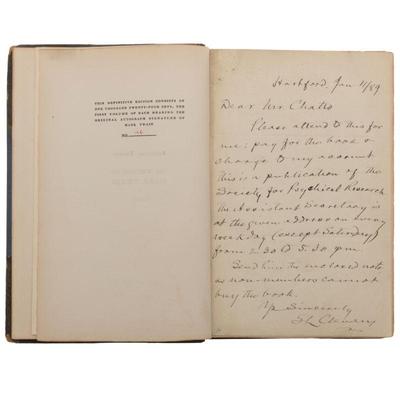 THIS DEFINITIVE EDITION CONSISTS OF
ONE THOUSAND TWENTY-FOUR SETS, THE
FIRST VOLUME OF EACH BEARING THE
ORIGINAL AUTOGRAPH SIGNATURE OF
MARK TWAIN
NO.
Hartford, Jan 11/89
Dear Mr. Chatto
Please attend to this for
me: pay for the book &
charge to my account
This is a publication of the
Society for Psychical Research
the Assistant Secretary is
at the given address on every
week day (except Saturday)
from 2.30 to 5.30 pm
Send him the enclosed note
as non-members cannot
buy the book.
Sincerely
SL Clemens